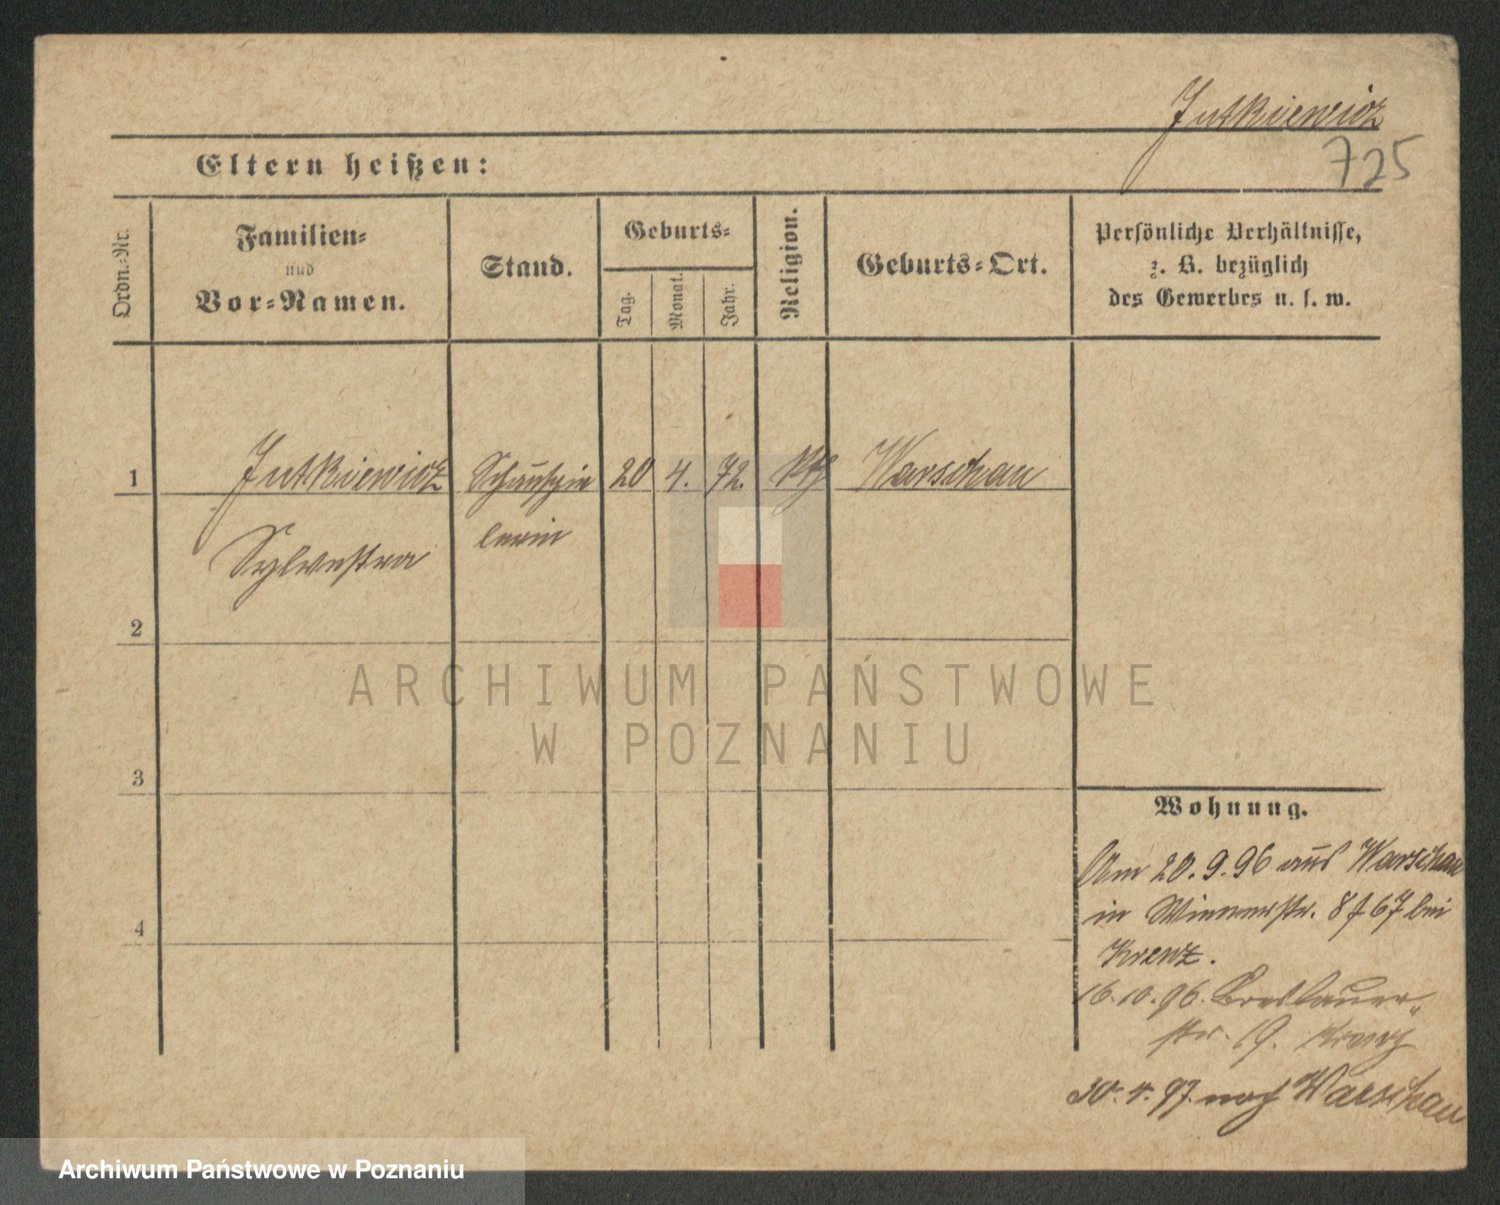 Jutkiewicz
725
Eltern heißen:
Ordn.-Nr.
Familien-
und
Vor-Namen.
Stand.
Geburts-
Tag.
Monat.
Jahr.
Religion.
Geburts-Ort.
Persönliche Verhältnisse,
z. B. bezüglich
des Gewerbes u. s. w.
1 Jutkiewicz Schauspie 20 4. 72. kth Warschau
Sylvestra lerin
2
3
4
ARCHIWUM PAŃSTWOWE
W POZNANIU
Wohnung.
Am 20.9.96 aus Warschau
in Wienerstr. 8 67 bei
Krenz.
16.10.96. Breslauer-
str. 19. Krenz
30.4.97. nach Warschau
Archiwum Państwowe w Poznaniu